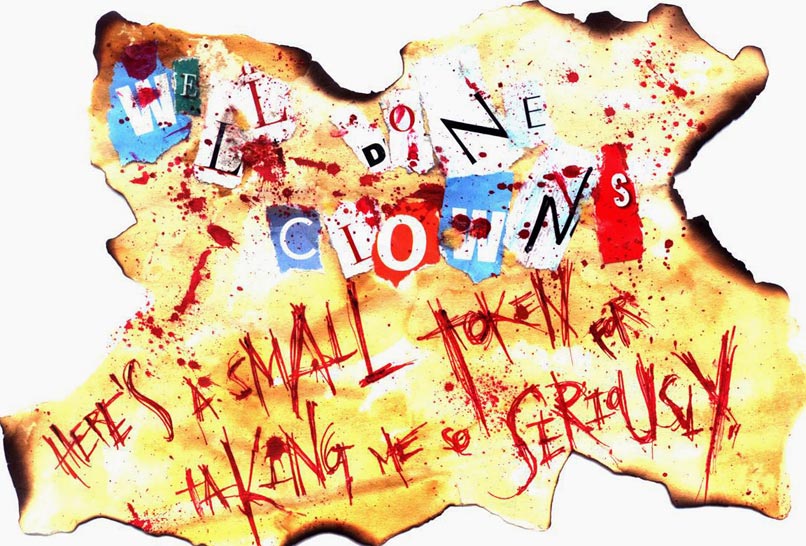 WELL DONE
CLOWNS
HERE'S A SMALL TOKEN FOR
TAKING ME SO SERIOUSLY.